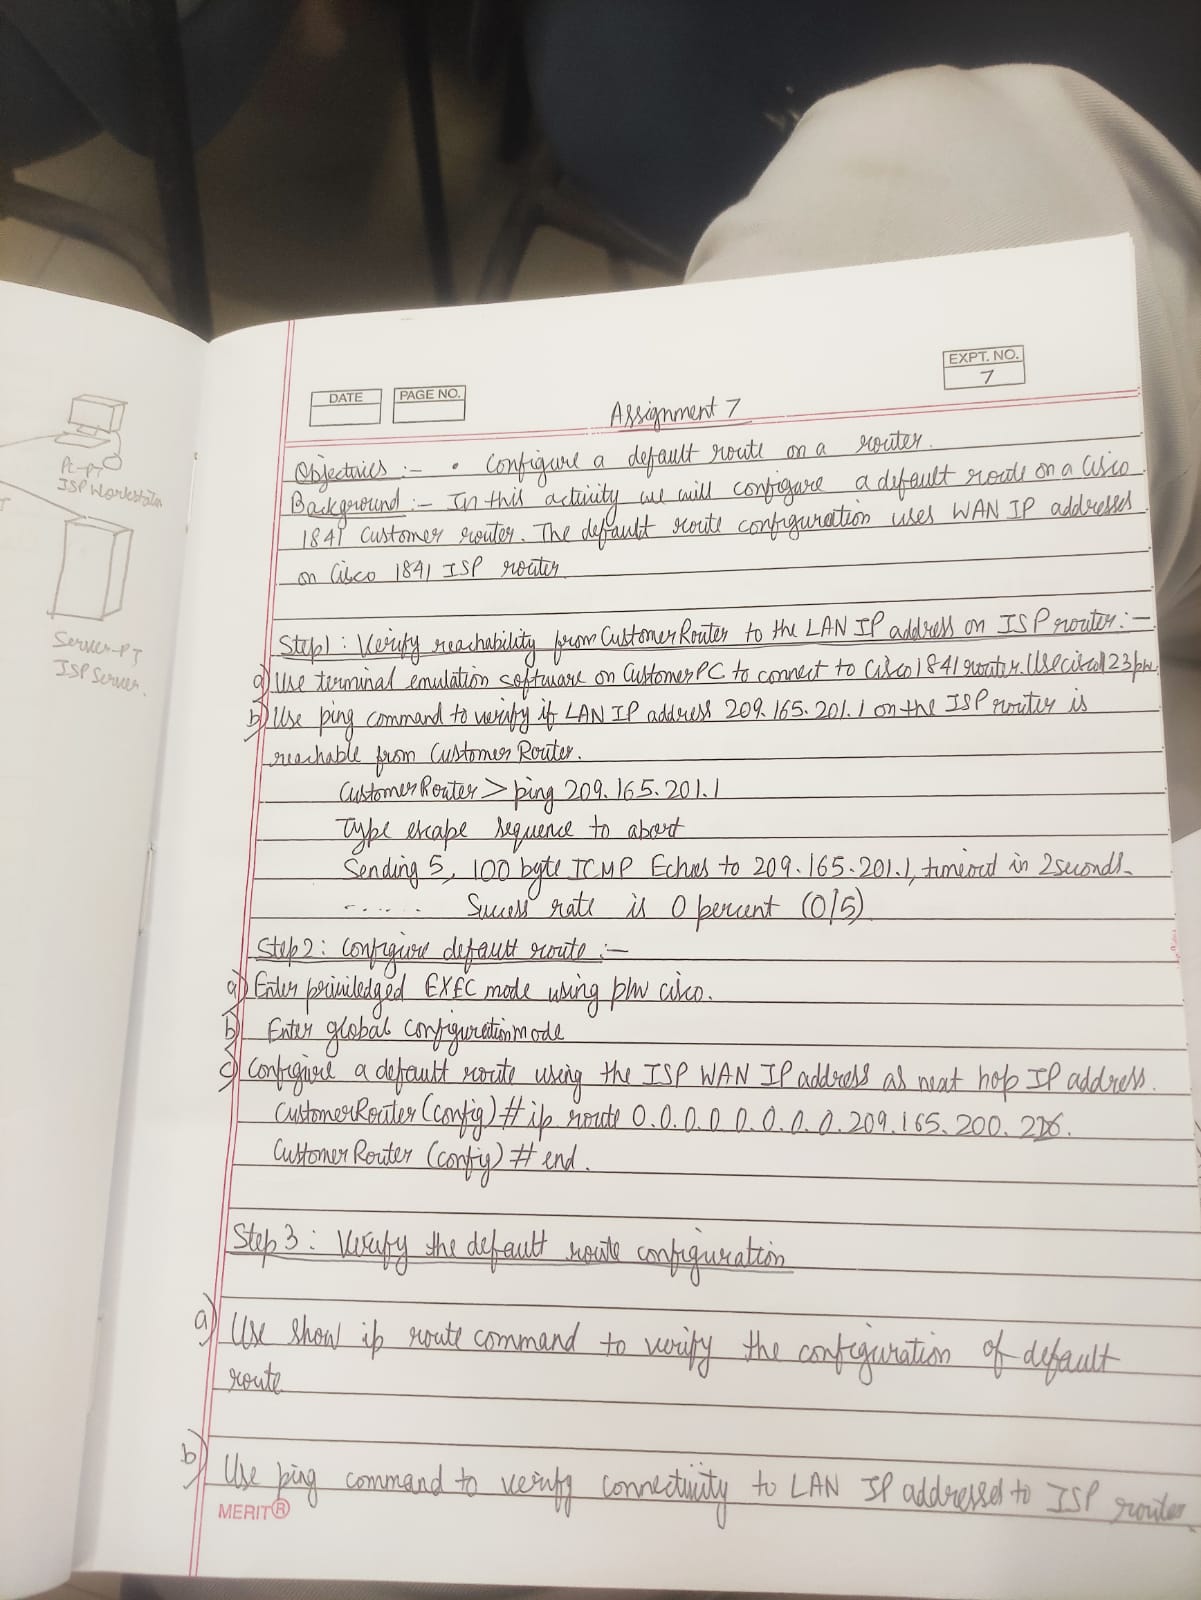 PC-PT
ISP Workstation
Server-PT
ISP Server.
DATE
PAGE NO.
EXPT. NO.
7
Assignment 7
Objectives :- • Configure a default route on a router.
Background :- In this activity we will configure a default route on a Cisco
1841 Customer router. The default route configuration uses WAN IP addresses
on Cisco 1841 ISP router
Step1 : Verify reachability from CustomerRouter to the LAN IP address on ISP router :-
a) Use terminal emulation software on CustomerPC to connect to Cisco 1841 router. Use cisco123 pw
b) Use ping command to verify if LAN IP address 209.165.201.1 on the ISP router is
reachable from Customer Router.
CustomerRouter > ping 209.165.201.1
Type escape sequence to abort
Sending 5, 100 byte ICMP Echos to 209.165.201.1, timeout in 2seconds.
...... Success rate is 0 percent (0/5)
Step2 : Configure default route :-
a) Enter priviledged EXEC mode using pw cisco.
b) Enter global configuration mode
c) Configure a default route using the ISP WAN IP address as next hop IP address.
CustomerRouter (config) # ip route 0.0.0.0 0.0.0.0. 209.165.200.
CustomerRouter (config) # end.
Step 3 : Verify the default route configuration
a) Use show ip route command to verify the configuration of default
route
b) Use ping command to verify connectivity to LAN IP addressed to ISP router
MERIT®